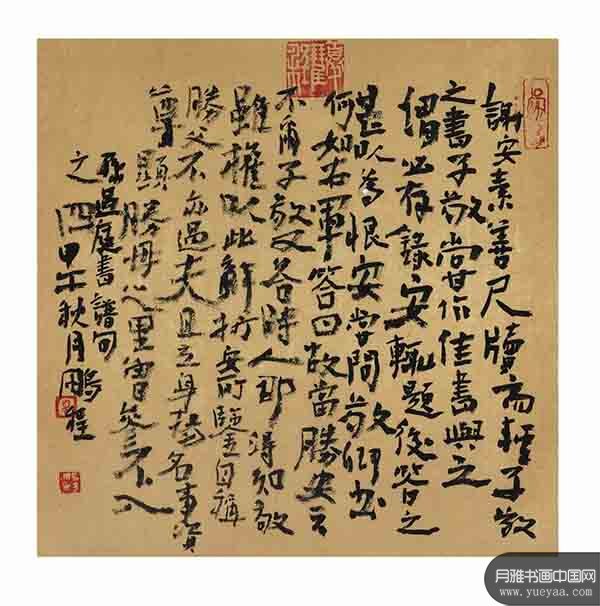 謝安素善尺牘而輕子敬
之書子敬嘗作佳書與之
謂必存錄安輒題後答之
甚以為恨安嘗問敬卿書
何如右軍答曰故當勝安云
不爾子敬又答時人那得知敬
雖權以此辭折安所鑒自稱
勝父不亦過夫且立身揚名事資
尊顯勝母之里曾參不入
孫過庭書譜句
之四甲午秋月鵬程
月雅书画中国网
www.yueyaa.com